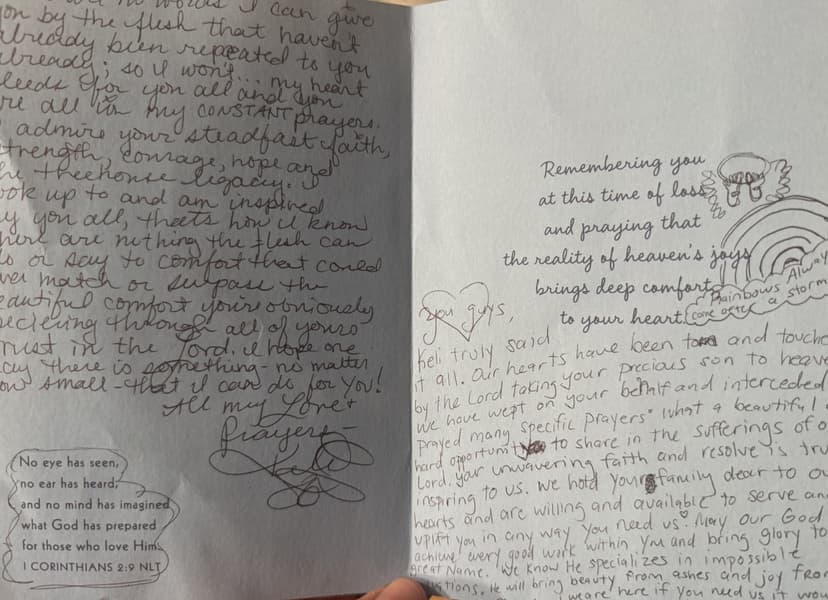 no words I can give
you by the flesh that haven't
already been repeated to you
already; so I won't... my heart
bleeds for you all and you
are all in my CONSTANT prayers.
I admire your steadfast faith,
strength, courage, hope and
the treehouse legacy. I
look up to and am inspired
by you all, thats how I know
there are nothing the flesh can
do or say to comfort that could
ever match or surpase the
beautiful comfort you're obviously
recieving through all of yours
trust in the Lord. I hope one
day there is something - no matter
how small - that I can do for you!
All my Love +
Prayers -
No eye has seen,
no ear has heard,
and no mind has imagined
what God has prepared
for those who love Him.
1 CORINTHIANS 2:9 NLT
Remembering you
at this time of loss
and praying that
the reality of heaven's joys
brings deep comfort
to your heart.
Rainbows Always
come after a storm
You guys,
Keli truly said
it all. Our hearts have been torn and touched
by the Lord taking your precious son to heaven
we have wept on your behalf and interceded
prayed many specific prayers. What a beautiful
hard opportunity to share in the sufferings of our
Lord. your unwavering faith and resolve is truly
inspiring to us. We hold your family dear to our
hearts and are willing and available to serve and
uplift you in any way you need us. May our God
achieve every good work within you and bring glory to
great Name. We know He specializes in impossible
He will bring beauty from ashes and joy from
we are here if you need us it would